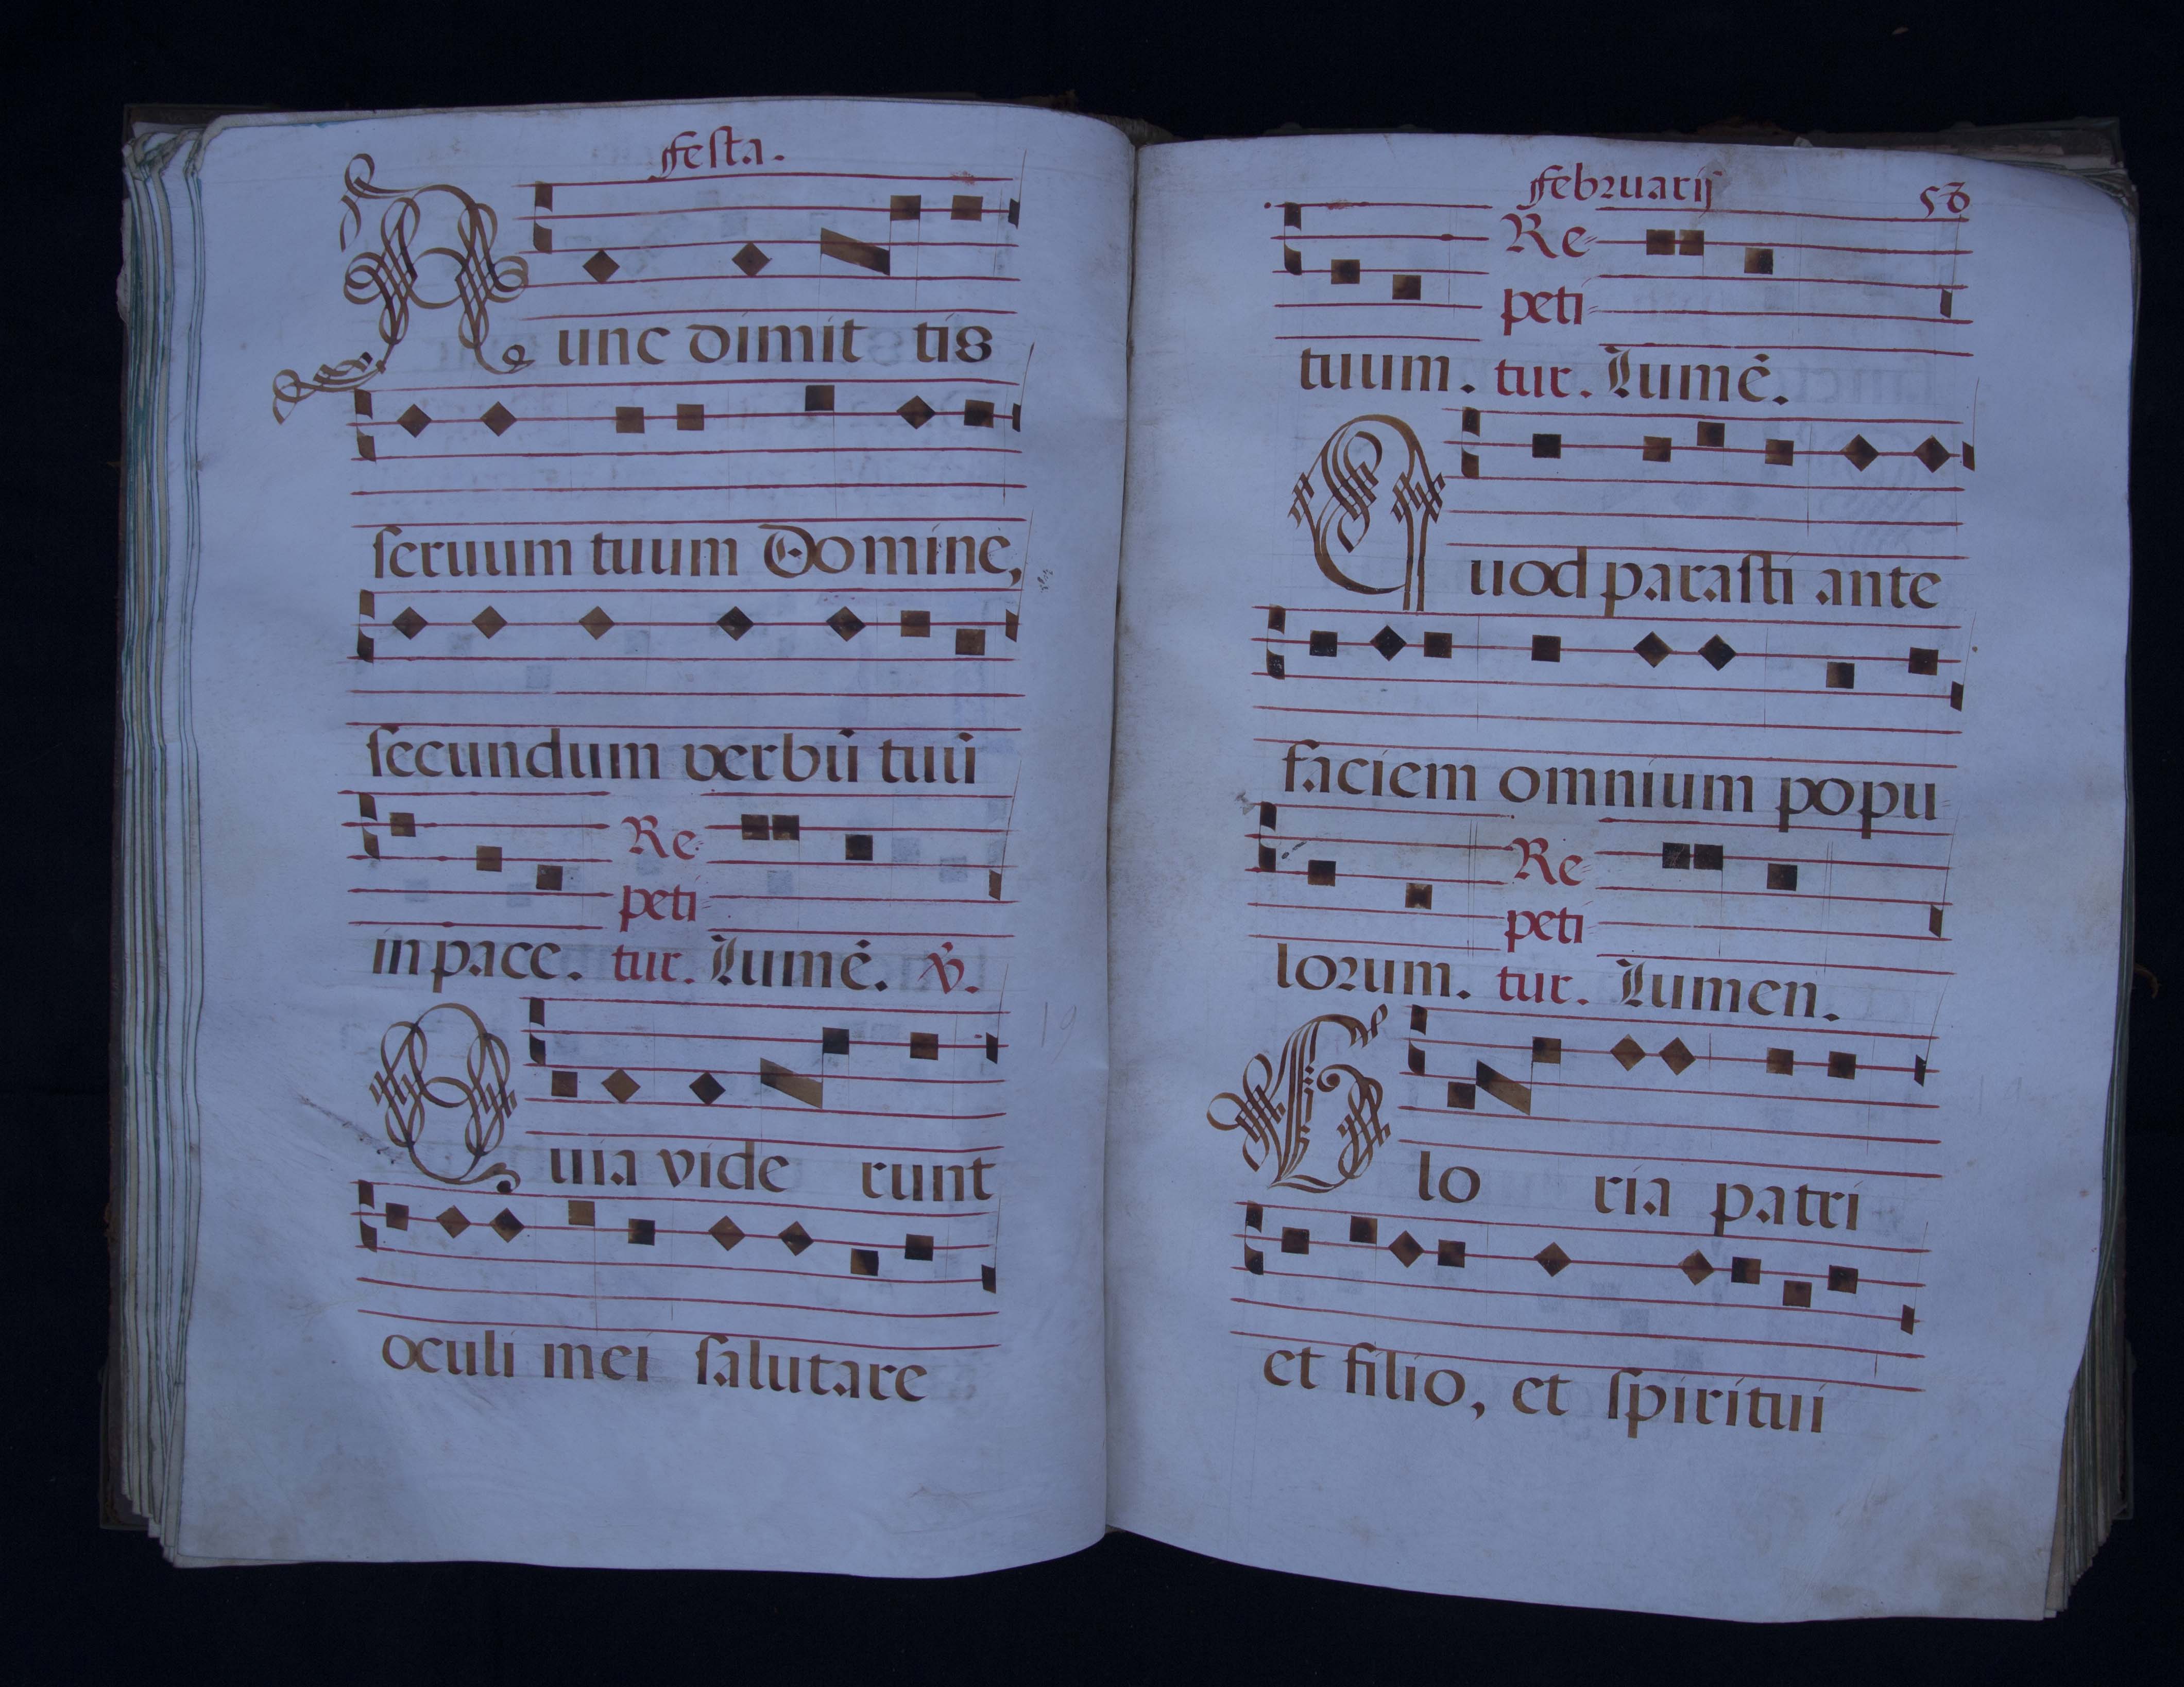 Festa.
Nunc dimit tis
seruum tuum Domine,
secundum verbū tuū
Re
peti
in pace. tur. Lumē. ℣.
Quia vide runt
oculi mei salutare
Februarij 58
Re
peti
tuum. tur. Lumē.
Quod parasti ante
faciem omnium popu
Re
peti
lorum. tur. Lumen.
Glo ria patri
et filio, et spiritui